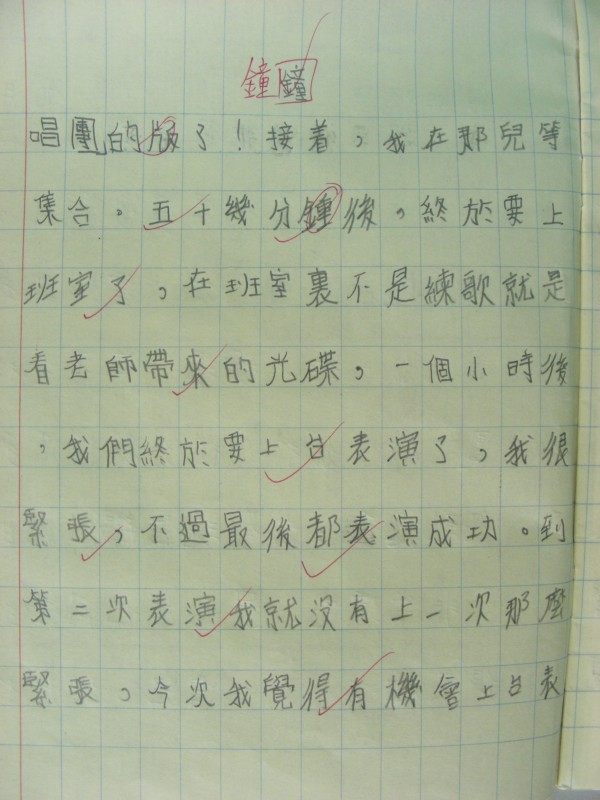 鐘鐘
唱團的版了！接着，我在那兒等
集合。五十幾分鐘後，終於要上
班室了，在班室裏不是練歌就是
看老師帶來的光碟，一個小時後
，我們終於要上台表演了，我很
緊張，不過最後都表演成功。到
第二次表演我就沒有上一次那麼
緊張，今次我覺得有機會上台表